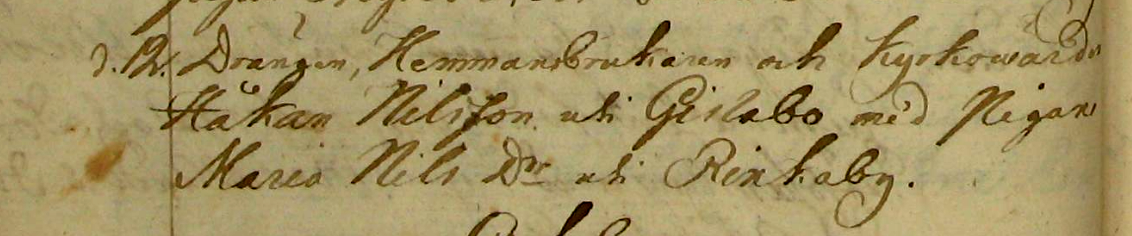 d. 12. Drängen, Hemmansbrukaren och Kyrkowärd
Håkan Nilsson uti Gislabo med Pigan
Maria Nils Dr uti Rinkaby.